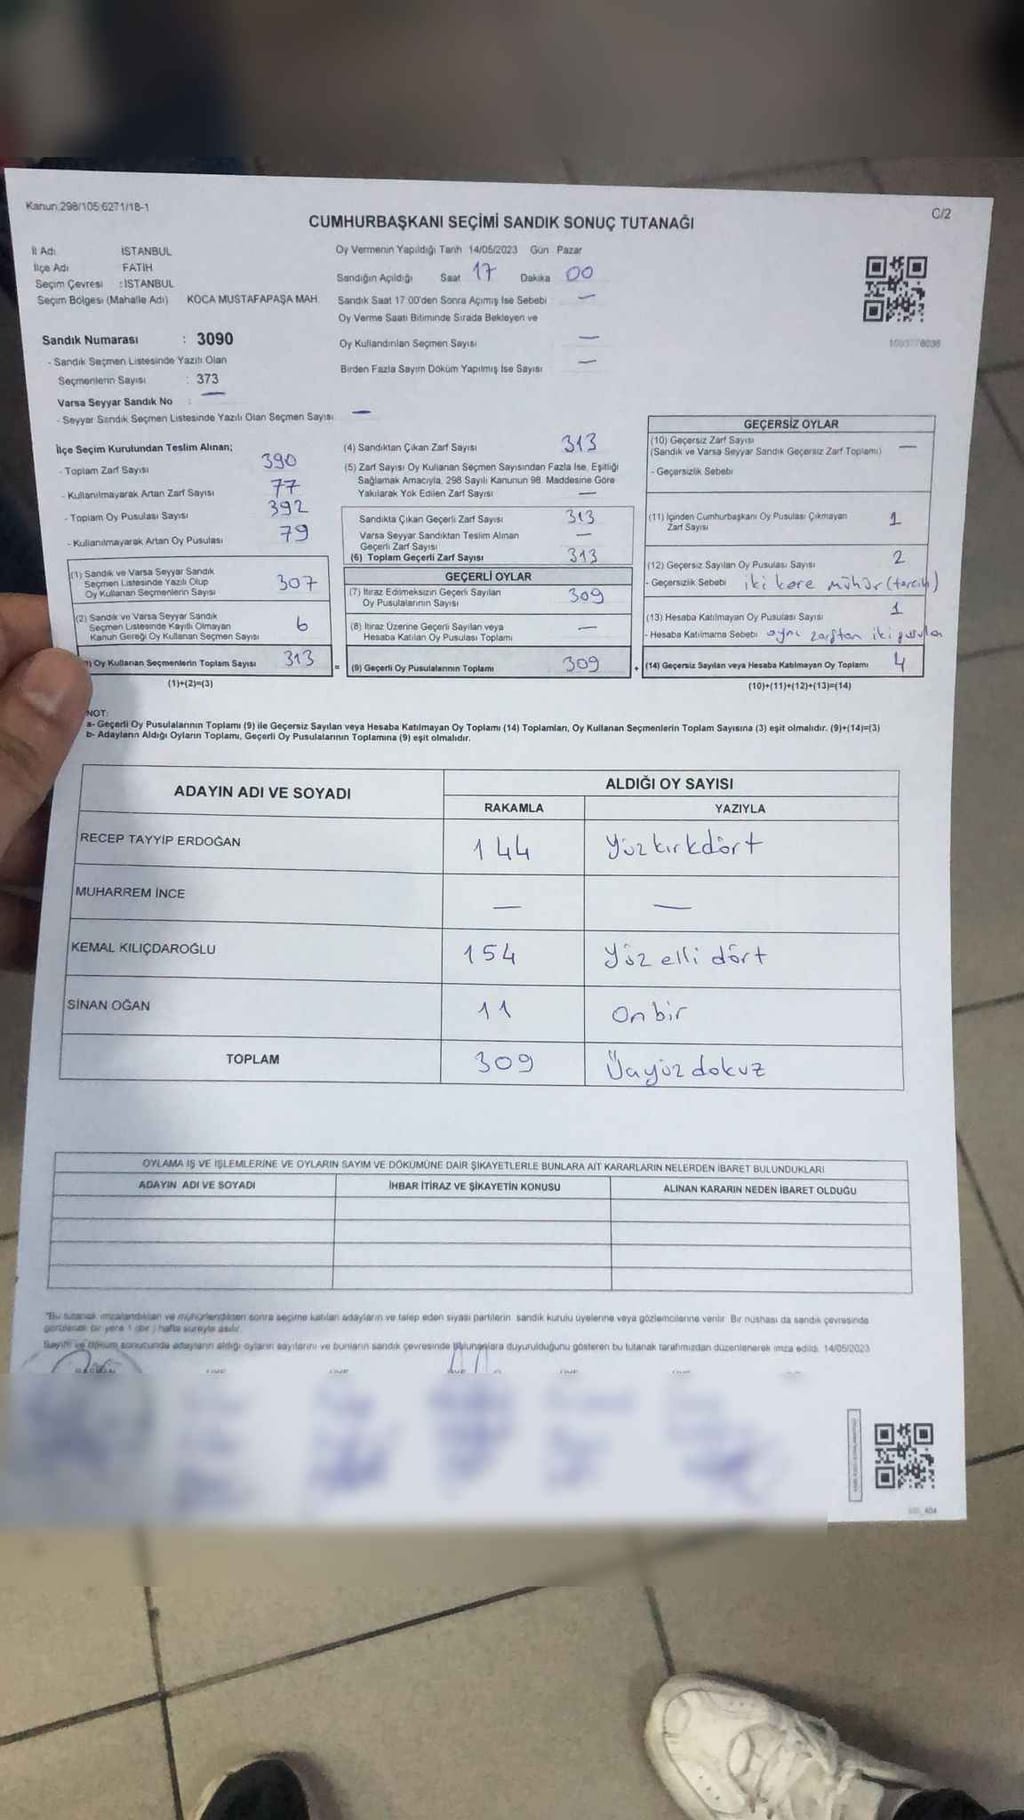 Kanun:298/105;6271/18-1
C/2
CUMHURBAŞKANI SEÇİMİ SANDIK SONUÇ TUTANAĞI
İl Adı İSTANBUL
İlçe Adı FATİH
Seçim Çevresi : İSTANBUL
Seçim Bölgesi (Mahalle Adı) KOCA MUSTAFAPAŞA MAH.
Oy Vermenin Yapıldığı Tarih 14/05/2023 Gün Pazar
Sandığın Açıldığı Saat 17 Dakika 00
Sandık Saat 17:00'den Sonra Açılmış İse Sebebi —
Oy Verme Saati Bitiminde Sırada Bekleyen ve
Oy Kullandırılan Seçmen Sayısı —
Birden Fazla Sayım Döküm Yapılmış İse Sayısı —
Sandık Numarası : 3090
- Sandık Seçmen Listesinde Yazılı Olan
Seçmenlerin Sayısı : 373
Varsa Seyyar Sandık No : —
- Seyyar Sandık Seçmen Listesinde Yazılı Olan Seçmen Sayısı —
İlçe Seçim Kurulundan Teslim Alınan;
- Toplam Zarf Sayısı 390
- Kullanılmayarak Artan Zarf Sayısı 77
- Toplam Oy Pusulası Sayısı 392
- Kullanılmayarak Artan Oy Pusulası 79
(1) Sandık ve Varsa Seyyar Sandık
Seçmen Listesinde Yazılı Olup
Oy Kullanan Seçmenlerin Sayısı 307
(2) Sandık ve Varsa Seyyar Sandık
Seçmen Listesinde Kayıtlı Olmayan
Kanun Gereği Oy Kullanan Seçmen Sayısı 6
(3) Oy Kullanan Seçmenlerin Toplam Sayısı 313
(1)+(2)=(3)
(4) Sandıktan Çıkan Zarf Sayısı 313
(5) Zarf Sayısı Oy Kullanan Seçmen Sayısından Fazla İse, Eşitliği
Sağlamak Amacıyla, 298 Sayılı Kanunun 98. Maddesine Göre
Yakılarak Yok Edilen Zarf Sayısı —
Sandıkta Çıkan Geçerli Zarf Sayısı 313
Varsa Seyyar Sandıktan Teslim Alınan
Geçerli Zarf Sayısı —
(6) Toplam Geçerli Zarf Sayısı 313
GEÇERLİ OYLAR
(7) İtiraz Edilmeksizin Geçerli Sayılan
Oy Pusulalarının Sayısı 309
(8) İtiraz Üzerine Geçerli Sayılan veya
Hesaba Katılan Oy Pusulası Toplamı —
= (9) Geçerli Oy Pusulalarının Toplamı 309
GEÇERSİZ OYLAR
(10) Geçersiz Zarf Sayısı —
(Sandık ve Varsa Seyyar Sandık Geçersiz Zarf Toplamı)
- Geçersizlik Sebebi
(11) İçinden Cumhurbaşkanı Oy Pusulası Çıkmayan
Zarf Sayısı 1
(12) Geçersiz Sayılan Oy Pusulası Sayısı 2
- Geçersizlik Sebebi iki kere mühür (tercih)
(13) Hesaba Katılmayan Oy Pusulası Sayısı 1
- Hesaba Katılmama Sebebi aynı zarftan iki pusula
+ (14) Geçersiz Sayılan veya Hesaba Katılmayan Oy Toplamı 4
(10)+(11)+(12)+(13)=(14)
NOT:
a- Geçerli Oy Pusulalarının Toplamı (9) ile Geçersiz Sayılan veya Hesaba Katılmayan Oy Toplamı (14) Toplamları, Oy Kullanan Seçmenlerin Toplam Sayısına (3) eşit olmalıdır. (9)+(14)=(3)
b- Adayların Aldığı Oyların Toplamı, Geçerli Oy Pusulalarının Toplamına (9) eşit olmalıdır.
ADAYIN ADI VE SOYADI ALDIĞI OY SAYISI
RAKAMLA YAZIYLA
RECEP TAYYİP ERDOĞAN 144 Yüzkırkdört
MUHARREM İNCE — —
KEMAL KILIÇDAROĞLU 154 Yüz elli dört
SİNAN OĞAN 11 On bir
TOPLAM 309 Üçyüz dokuz
OYLAMA İŞ VE İŞLEMLERİNE VE OYLARIN SAYIM VE DÖKÜMÜNE DAİR ŞİKAYETLERLE BUNLARA AİT KARARLARIN NELERDEN İBARET BULUNDUKLARI
ADAYIN ADI VE SOYADI İHBAR İTİRAZ VE ŞİKAYETİN KONUSU ALINAN KARARIN NEDEN İBARET OLDUĞU
"Bu tutanak imzalandıktan ve mühürlendikten sonra seçime katılan adayların ve talep eden siyasi partilerin sandık kurulu üyelerine veya gözlemcilerine verilir. Bir nüshası da sandık çevresinde
görülecek bir yere 1 (bir) hafta süreyle asılır.
Sayım ve döküm sonucunda adayların aldığı oyların sayılarını ve bunların sandık çevresinde bulunanlara duyurulduğunu gösteren bu tutanak tarafımızdan düzenlenerek imza edildi. 14/05/2023